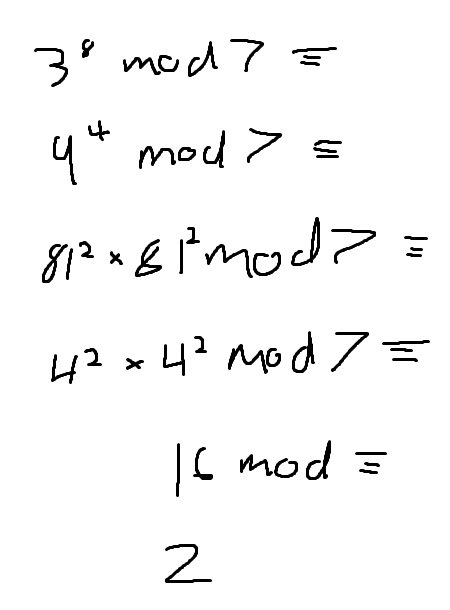 3⁸ mod 7 ≡
4⁴ mod 7 ≡
81² × 81² mod 7 ≡
4² × 4² mod 7 ≡
16 mod ≡
2